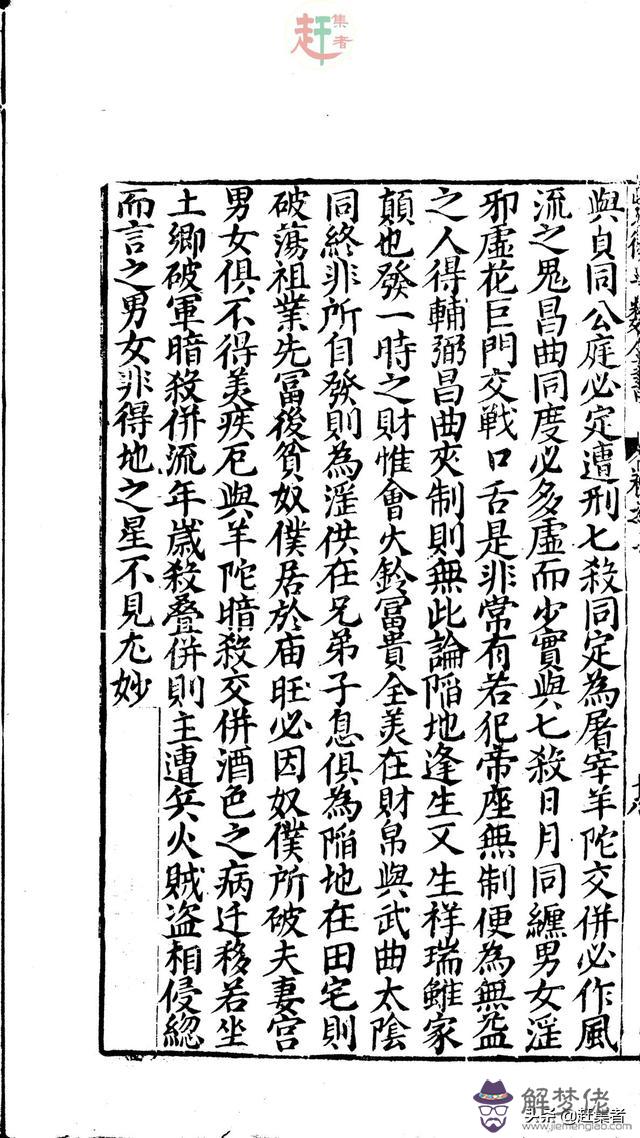 赶集者
與貞同公庭必定遭刑七殺同定為屠宰羊陀交併必作風
流之鬼昌曲同度必多虛而少實與七殺日月同纏男女淫
邪虛花巨門交戰口舌是非常有若犯帝座無制便為無益
之人得輔弼昌曲夾制則無此論陷地逢生又生祥瑞雖家
顛也發一時之財惟會火鈴富貴全美在財帛與武曲太陰
同終非所自發則為淫供在兄弟子息俱為陷地在田宅則
破蕩祖業先富後貧奴僕居於庙旺必因奴僕所破夫妻宮
男女俱不得美疾厄與羊陀暗殺交併酒色之病迁移若坐
土鄉破軍暗殺併流年嵗殺叠併則主遭兵火賊盗相侵緫
而言之男女非得地之星不見尤妙
解梦佬
www.jiemenglao.com
头条@赶集者